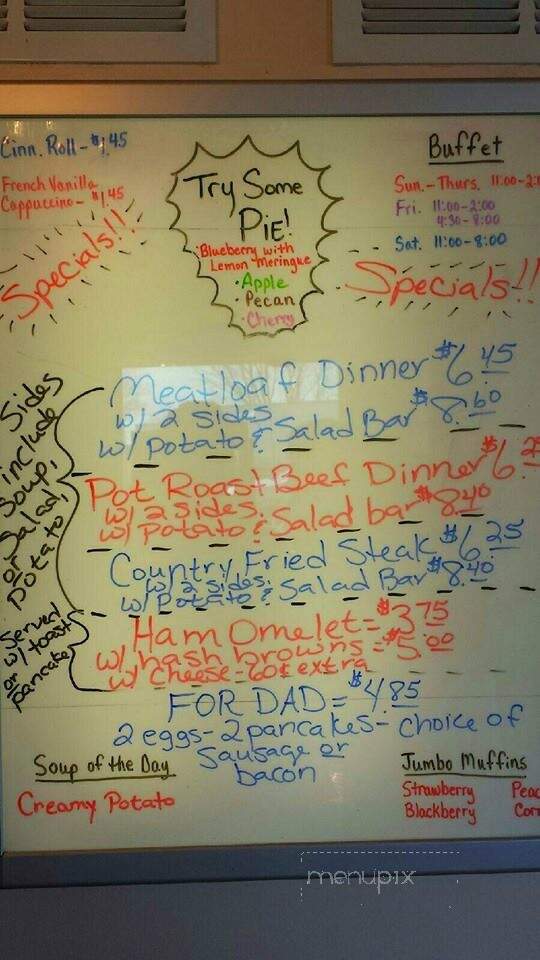 Cinn. Roll - $1.45
French Vanilla
Cappuccino - $1.45
Specials!!
Try Some
PIE!
• Blueberry with
Lemon Meringue
• Apple
• Pecan
• Cherry
Buffet
Sun. - Thurs. 11:00-2:
Fri. 11:00-2:00
4:30-8:00
Sat. 11:00-8:00
Specials!!
Sides
include
Soup,
Salad,
or
potato
Meatloaf Dinner $6.45
w/ 2 sides
w/ potato & Salad Bar $8.60
Pot Roast Beef Dinner $6.25
w/ 2 sides.
w/ potato & Salad bar $8.40
Country Fried Steak $6.25
w/ 2 sides.
w/ Potato & Salad Bar $8.40
Served
w/ toast
or
pancake
Ham Omelet = $3.75
w/ hash browns = $5.00
w/ cheese - 60¢ extra
FOR DAD = $4.85
2 eggs - 2 pancakes - choice of
Sausage or
bacon
Soup of the Day
Creamy Potato
Jumbo Muffins
Strawberry Peac
Blackberry Corn
menupix